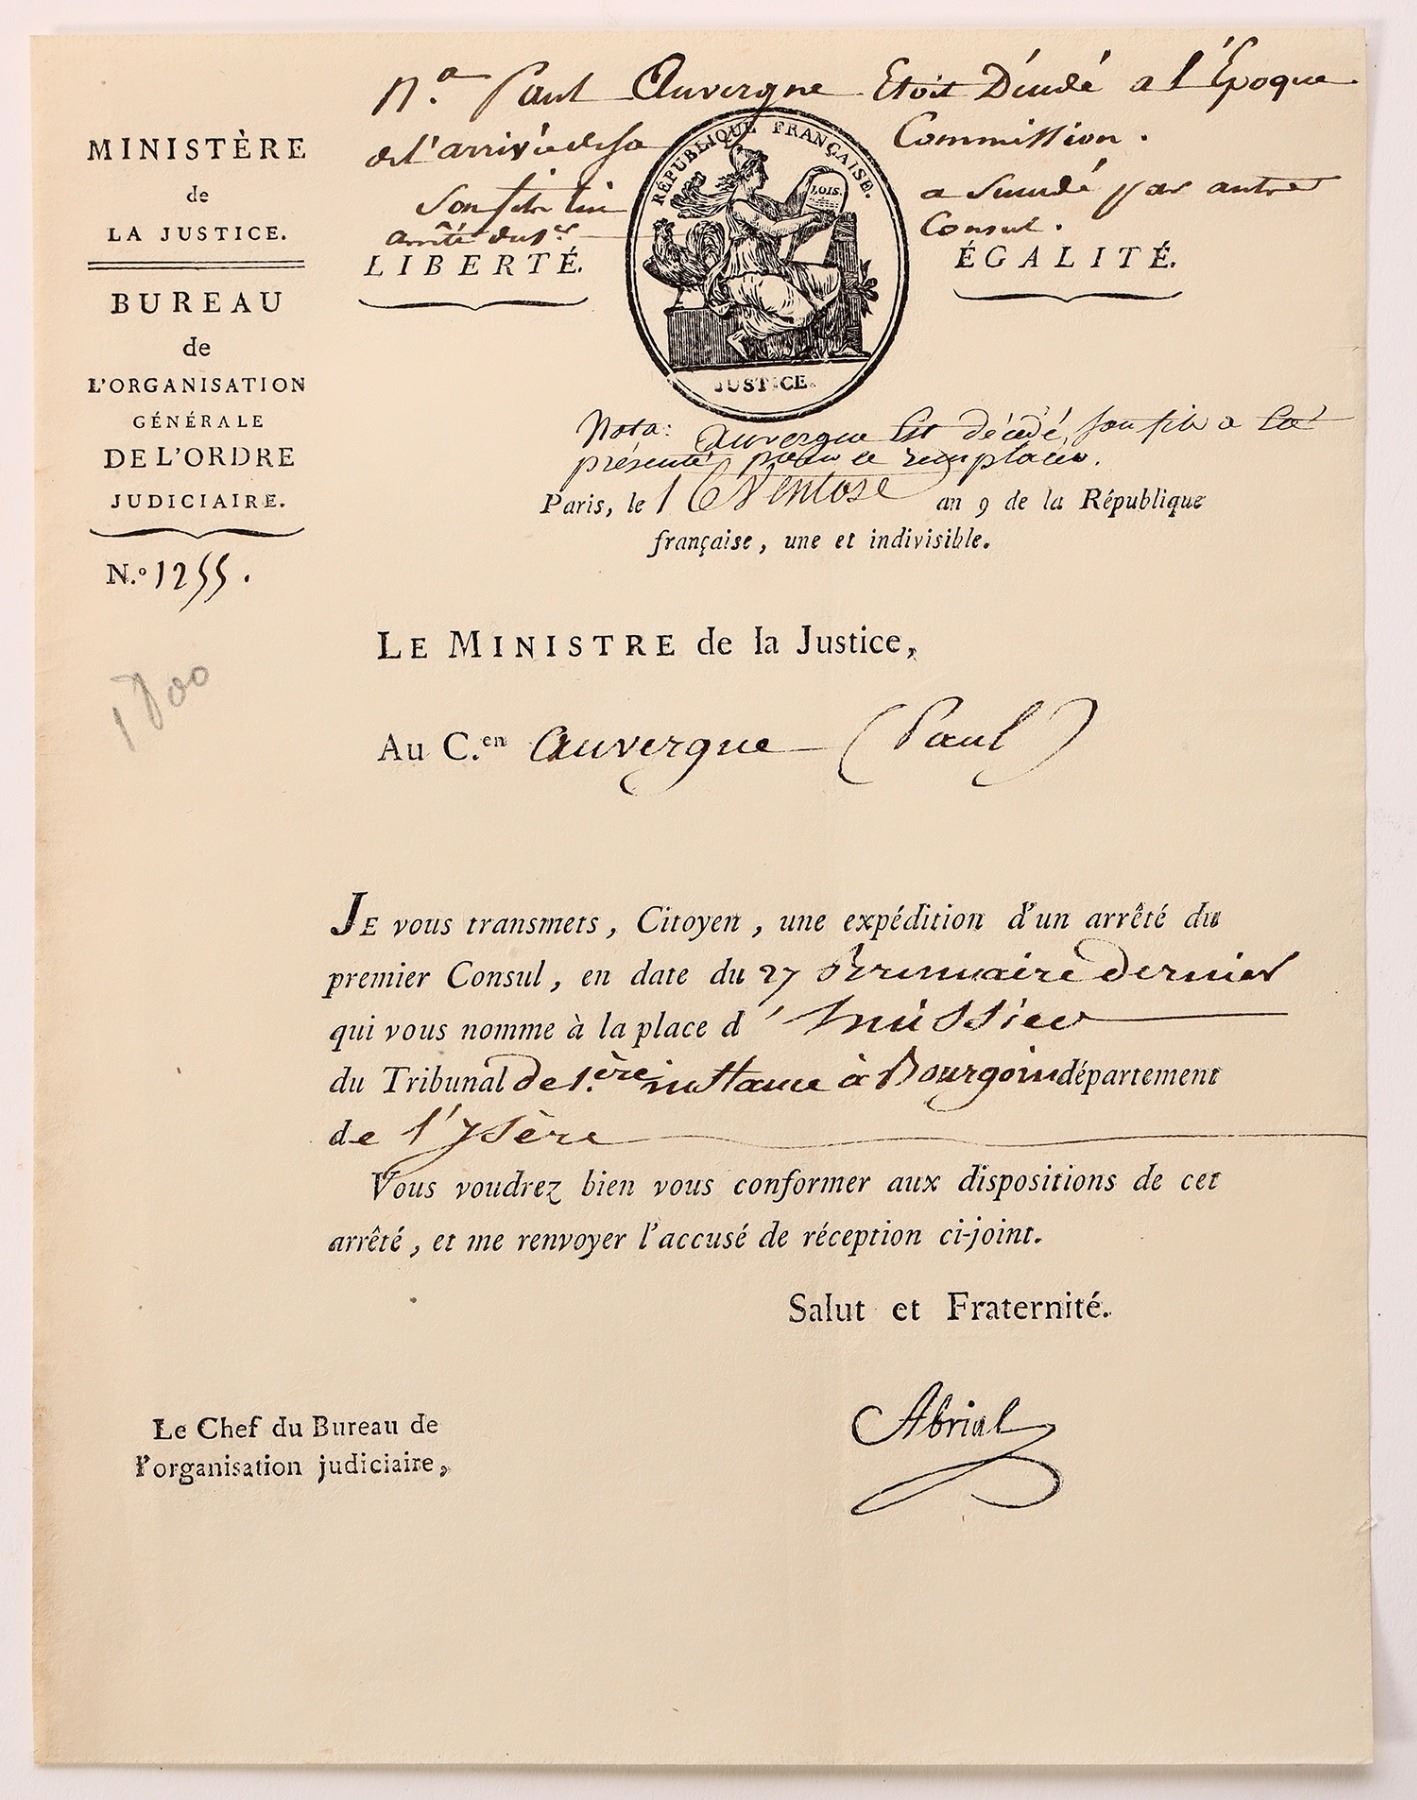 Nª Paul Auvergne Etoit Décédé a l'Époque
de l'arrivée de sa Commission.
Son fils lui a succédé par autre
arrêté du 1er Consul.
MINISTÈRE
de
LA JUSTICE.
BUREAU
de
L'ORGANISATION
GÉNÉRALE
DE L'ORDRE
JUDICIAIRE.
N.º 1255.
1800
LIBERTÉ.
RÉPUBLIQUE FRANÇAISE.
LOIS.
JUSTICE.
ÉGALITÉ.
Nota: Auvergne est décédé, son fils a été
présenté pour le remplacer.
Paris, le 1 Ventose an 9 de la République
française, une et indivisible.
LE MINISTRE de la Justice,
Au C.en Auvergne (Paul)
JE vous transmets, Citoyen, une expédition d'un arrêté du
premier Consul, en date du 27 Brumaire dernier
qui vous nomme à la place d'huissier
du Tribunal de 1.ère instance à Bourgoin département
de l'Ysère
Vous voudrez bien vous conformer aux dispositions de cet
arrêté, et me renvoyer l'accusé de réception ci-joint.
Salut et Fraternité.
Abrial
Le Chef du Bureau de
l'organisation judiciaire,